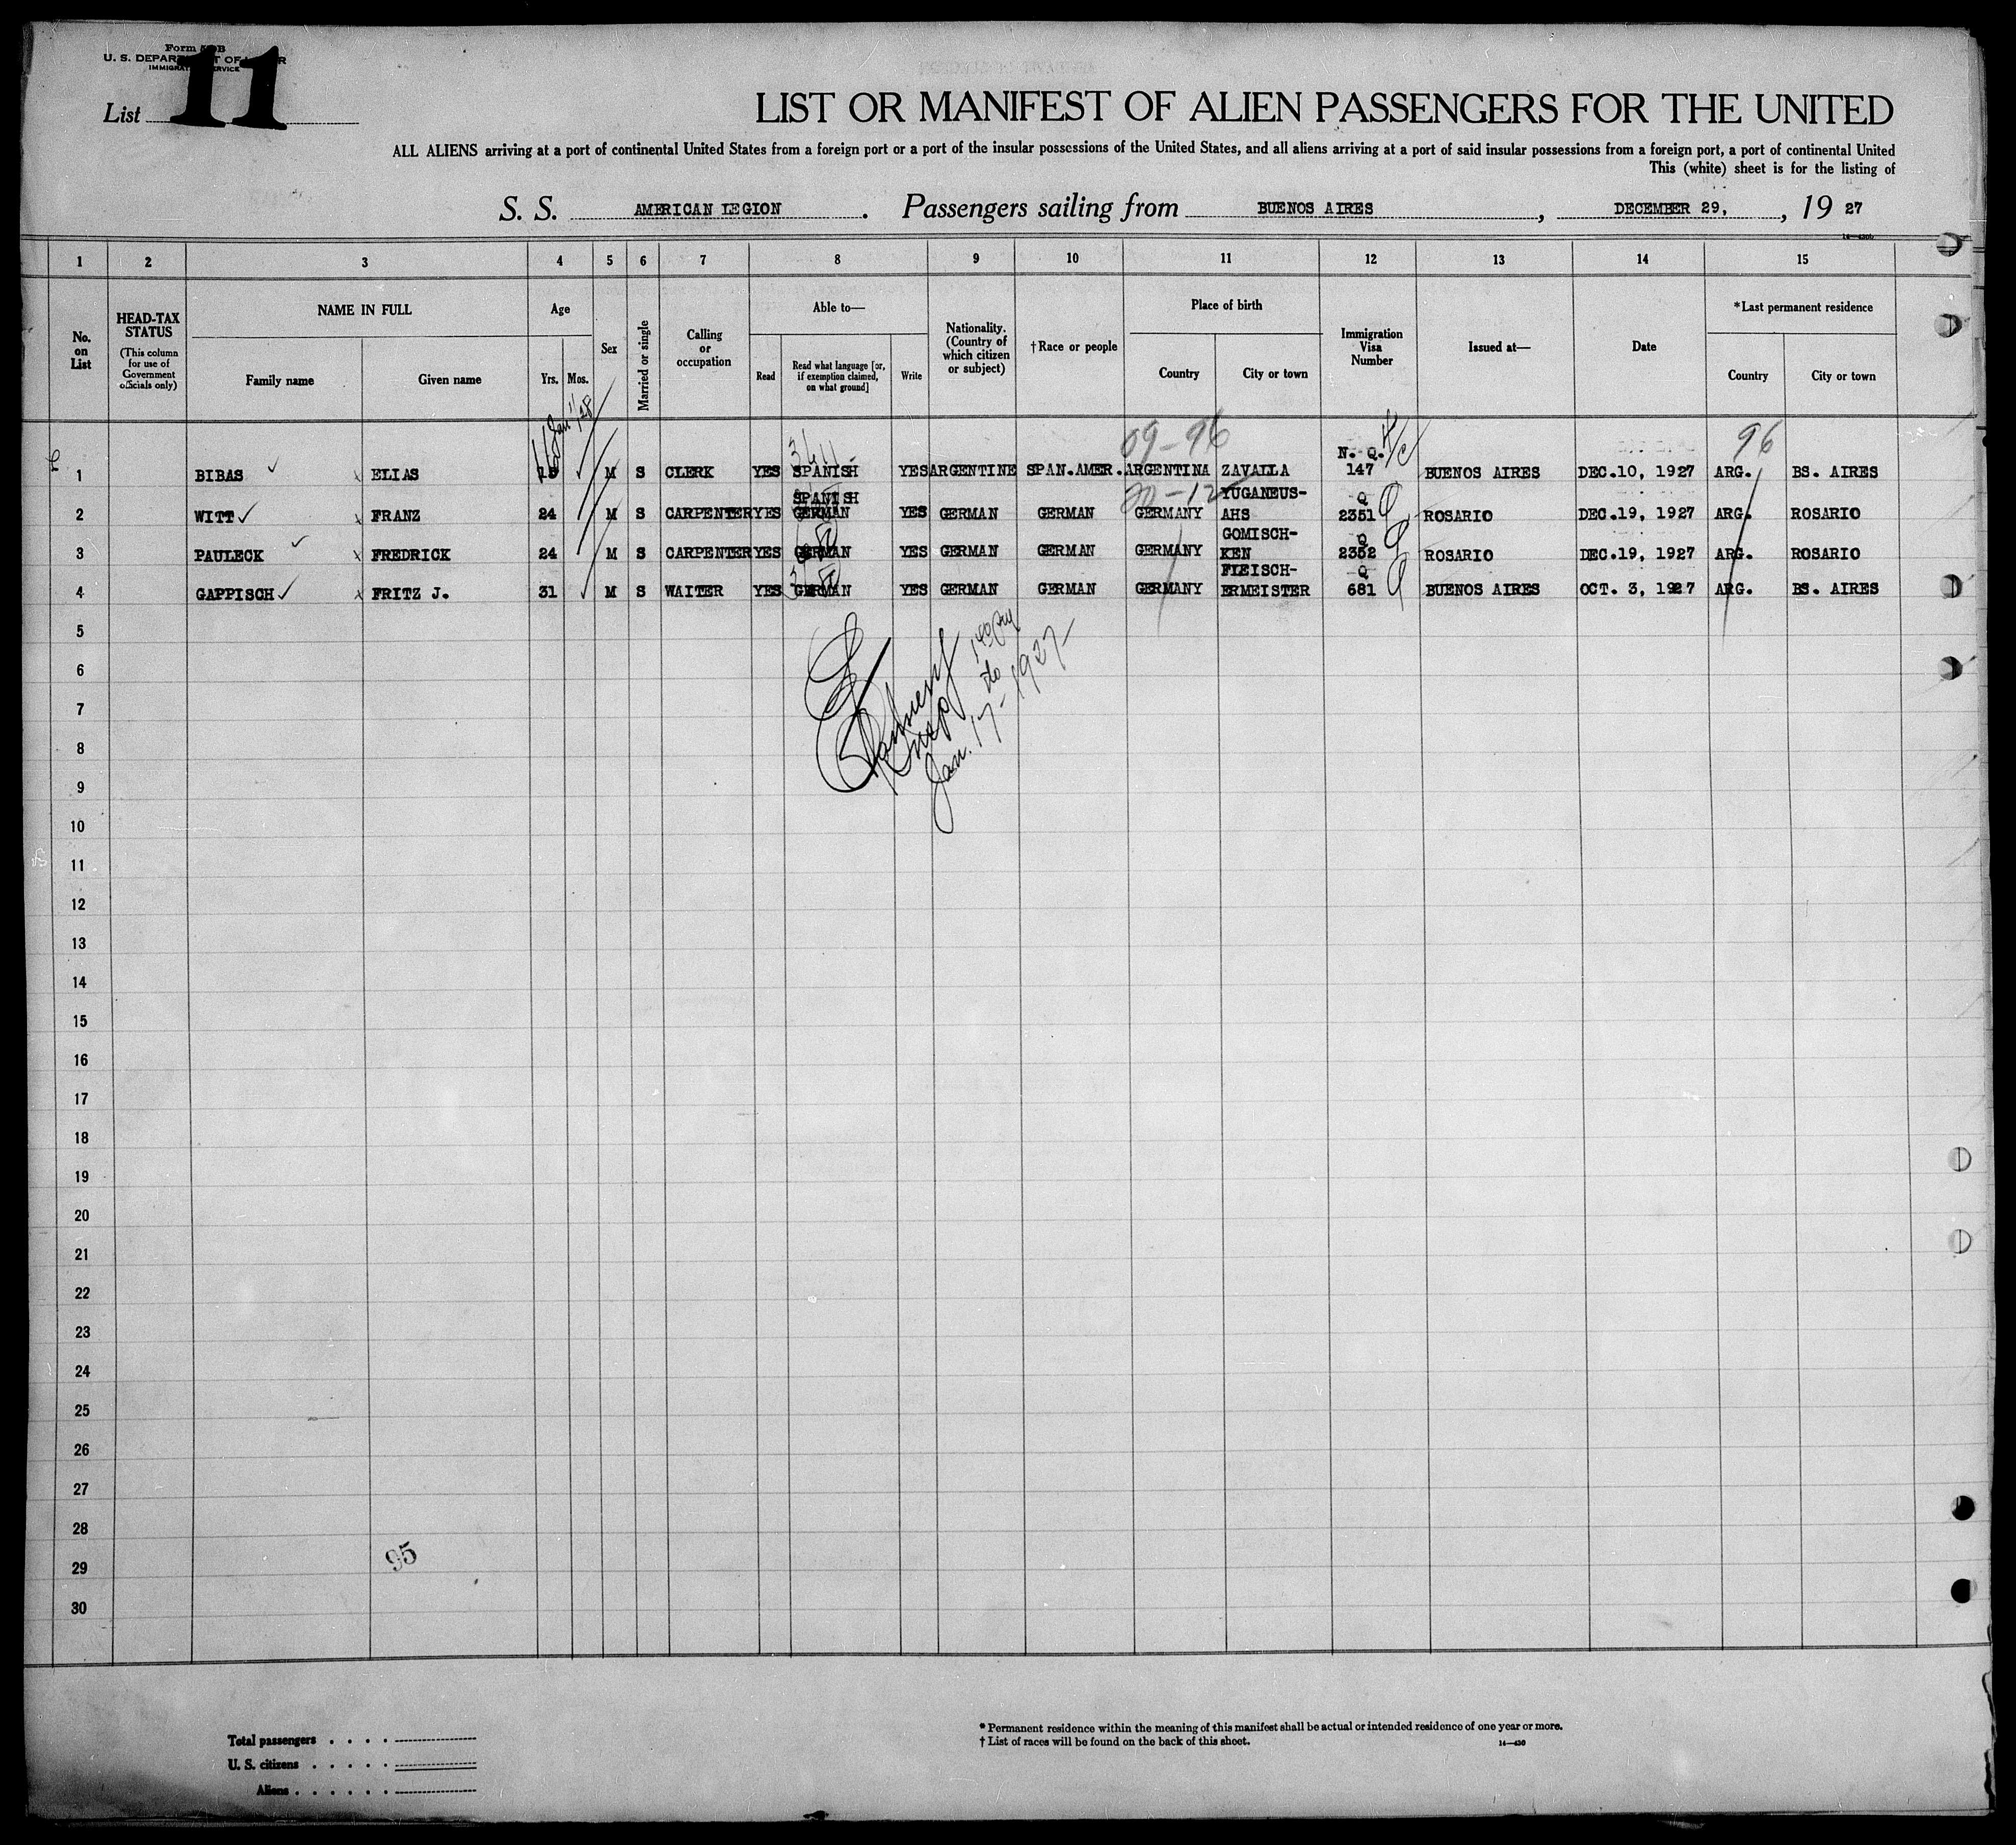 Form
U. S. DEPAR
IMMIGRA
List 11
LIST OR MANIFEST OF ALIEN PASSENGERS FOR THE UNITED
ALL ALIENS arriving at a port of continental United States from a foreign port or a port of the insular possessions of the United States, and all aliens arriving at a port of said insular possessions from a foreign port, a port of continental United
This (white) sheet is for the listing of
S. S. AMERICAN LEGION . Passengers sailing from BUENOS AIRES , DECEMBER 29, , 19 27
1 2 3 4 5 6 7 8 9 10 11 12 13 14 15
No. on List
HEAD-TAX STATUS
(This column for use of Government officials only)
NAME IN FULL
Family name Given name
Age
Yrs. Mos.
Sex
Married or single
Calling or occupation
Able to—
Read
Read what language [or, if exemption claimed, on what ground]
Write
Nationality. (Country of which citizen or subject)
†Race or people
Place of birth
Country City or town
Immigration Visa Number
Issued at—
Date
*Last permanent residence
Country City or town
09-96 96
N. Q.
1 BIBAS ELIAS M S CLERK YES SPANISH YES ARGENTINE SPAN.AMER. ARGENTINA ZAVALLA 147 BUENOS AIRES DEC.10, 1927 ARG. BS. AIRES
SPANISH 20-12 YUGANEUS- Q
2 WITT FRANZ 24 M S CARPENTER YES GERMAN YES GERMAN GERMAN GERMANY AHS 2351 ROSARIO DEC.19, 1927 ARG. ROSARIO
GOMISCH- Q
3 PAULECK FREDRICK 24 M S CARPENTER YES GERMAN YES GERMAN GERMAN GERMANY KEN 2352 ROSARIO DEC.19, 1927 ARG. ROSARIO
FLEISCH- Q
4 GAPPISCH FRITZ J. 31 M S WAITER YES GERMAN YES GERMAN GERMAN GERMANY ERMEISTER 681 BUENOS AIRES OCT. 3, 1927 ARG. BS. AIRES
5
6
7
Insp
Jan. 17-1927
8
9
10
11
12
13
14
15
16
17
18
19
20
21
22
23
24
25
26
27
28
29 95
30
Total passengers . . . .
U. S. citizens . . . . .
Aliens . . . . . .
* Permanent residence within the meaning of this manifest shall be actual or intended residence of one year or more.
† List of races will be found on the back of this sheet.
14—430